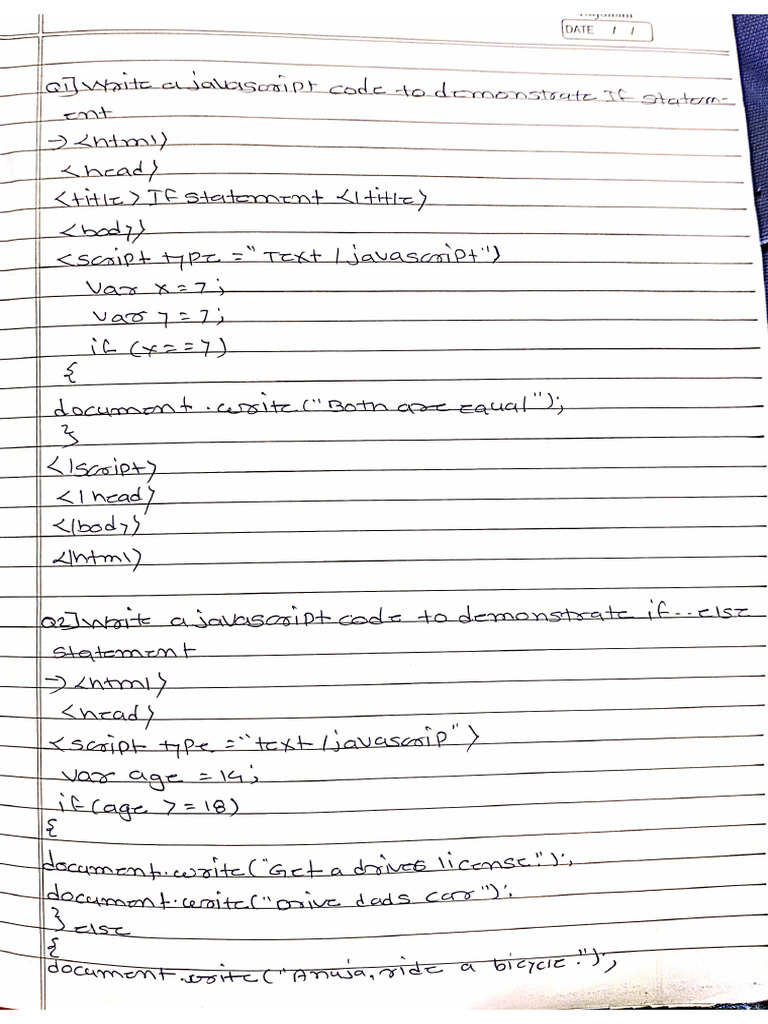 DATE / /
Q1] Write a javascript code to demonstrate If statem-
ent
→ <html>
<head>
<title> If statement </title>
<body>
<script type = "Text / javascript">
var x = 7;
var y = 7;
if (x == y)
{
document.write("Both are equal");
}
</script>
</head>
</body>
</html>
Q2] Write a javascript code to demonstrate if...else
statement
→ <html>
<head>
<script type = "text / javascrip">
var age = 14;
if (age >= 18)
{
document.write("Get a drives license.");
document.write("Drive dads car");
} else
{
document.write("Anuja, ride a bicycle.");